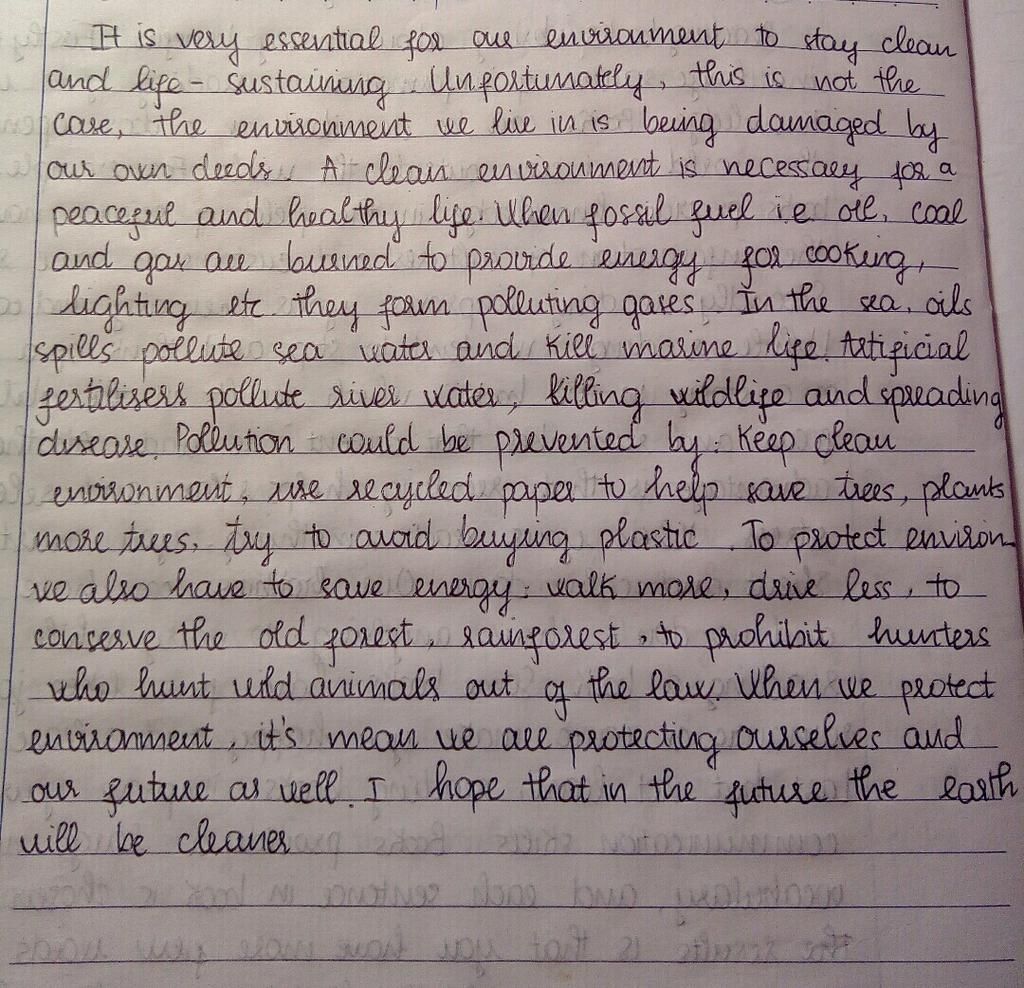 It is very essential for our environment to stay clean
and life - sustaining. Unfortunately, this is not the
case, the environment we live in is being damaged by
our own deeds. A clean environment is necessary for a
peaceful and healthy life. When fossil fuel i.e oil, coal
and gas are burned to provide energy for cooking,
lighting etc they form polluting gases. In the sea, oils
spills pollute sea water and kill marine life. Artificial
fertilisers pollute river water, killing wildlife and spreading
disease. Pollution could be prevented by: Keep clean
environment, use recycled paper to help save trees, plants
more trees, try to avoid buying plastic. To protect environ
we also have to save energy: walk more, drive less, to
conserve the old forest, rainforest, to prohibit hunters
who hunt wild animals out of the law. When we protect
environment, it's mean we are protecting ourselves and
our future as well. I hope that in the future the earth
will be cleaner